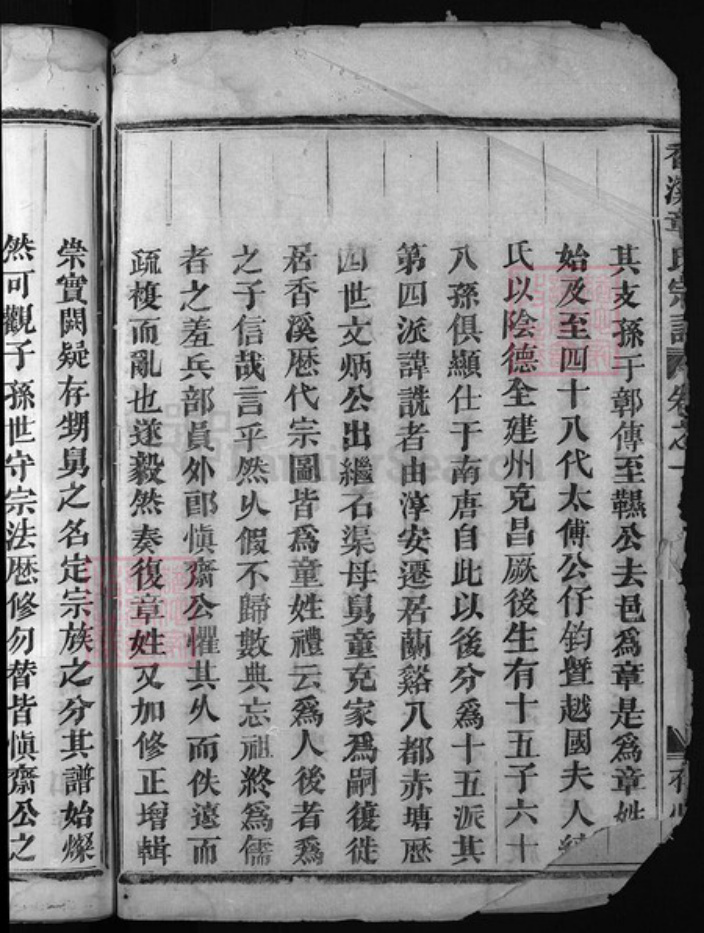 香溪章氏宗譜 卷之一
其支孫于鄣傳至韅公去邑爲章是爲章姓
始及至四十八代太傅公仔鈞暨越國夫人
氏以陰德全建州克昌厥後生有十五子六十
八孫俱顯仕于南唐自此以後分爲十五派其
第四派諱詵者由淳安遷居蘭谿八都赤塘歷
四世文炳公出繼石渠母舅童克家爲嗣復徙
居香溪歷代宗圖皆爲童姓禮云爲人後者爲
之子信哉言乎然久假不歸數典忘祖終爲儒
者之羞兵部員外郎愼齋公懼其久而佚遠而
疏複而亂也遂毅然奏復章姓又加修正增輯
崇實闕疑存甥舅之名定宗族之分其譜始燦
然可觀子孫世守宗法歷修勿替皆愼齋公之